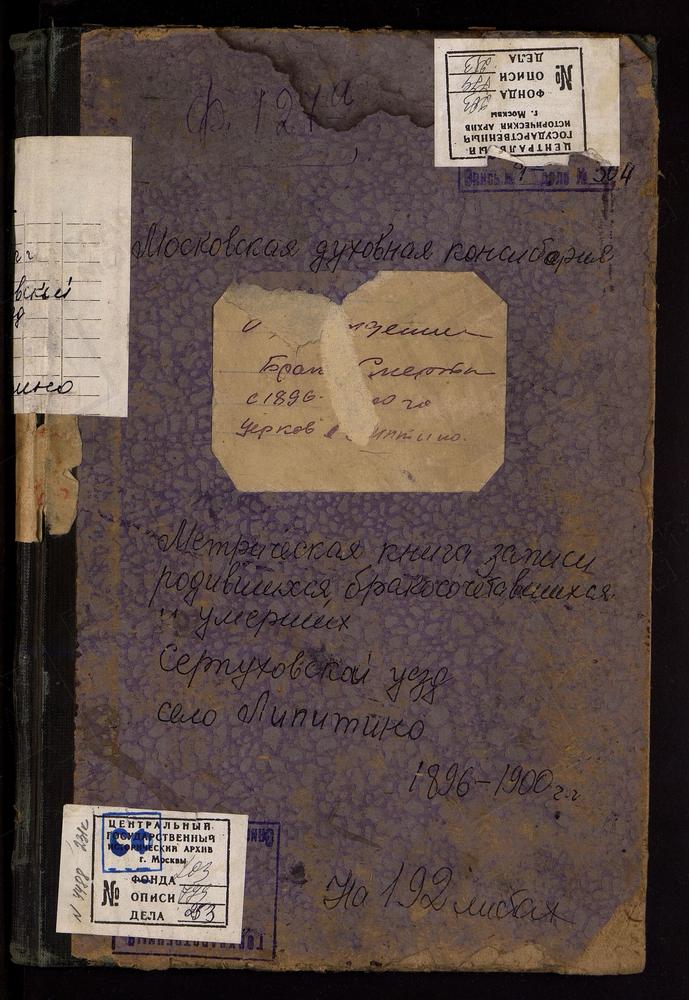 Ф. 1271
ЦЕНТРАЛЬНЫЙ
ГОСУДАРСТВЕННЫЙ
ИСТОРИЧЕСКИЙ АРХИВ
г. Москвы
ФОНДА 203
№ ОПИСИ
ДЕЛА
Опись № дело № 504
Московская духовная консистория
Брак Смерти
с 1896
Церков
Метрическая книга записи
родившихся, бракосочетавшихся
и умерших
Серпуховской уезд
село Липитино
1896-1900 г.г
На 192 листах
ЦЕНТРАЛЬНЫЙ
ГОСУДАРСТВЕННЫЙ
ИСТОРИЧЕСКИЙ АРХИВ
г. Москвы
ФОНДА 203
№ ОПИСИ
ДЕЛА